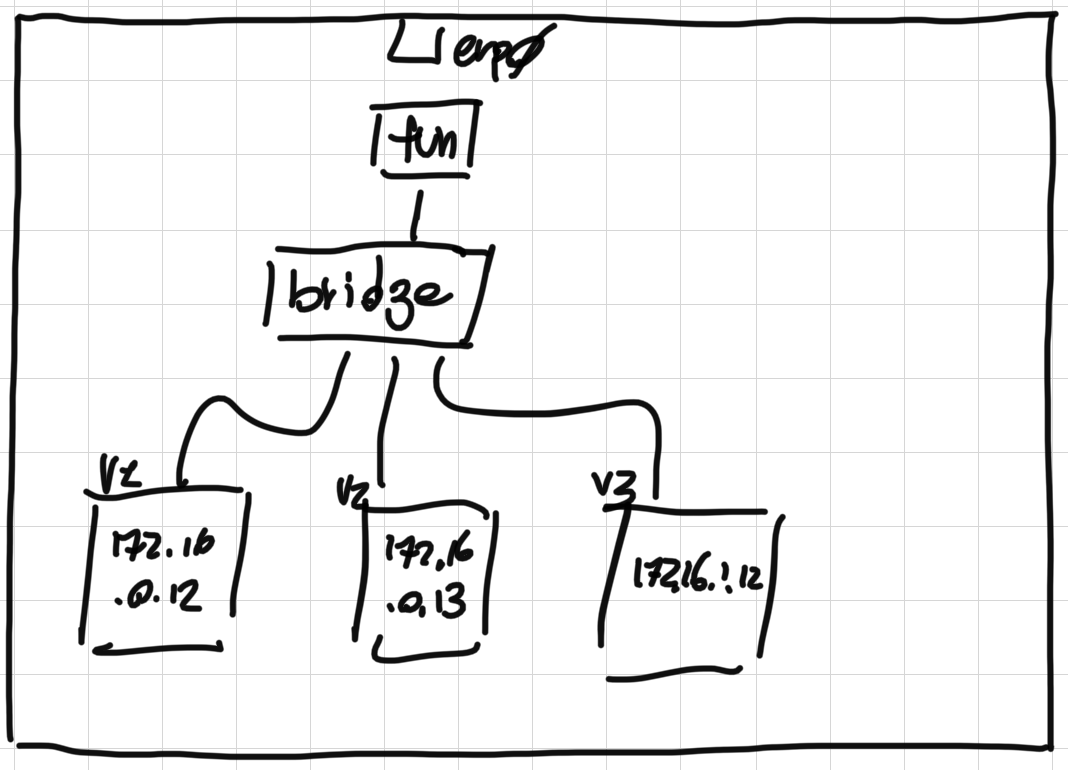 enp0
tun
bridge
V1
172.16
.0.12
V2
172.16
.0.13
V3
172.16.1.12